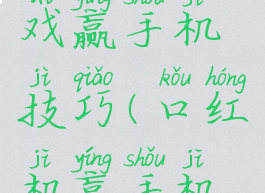 戏赢手机
jì qiǎo kǒu hóng
技巧(口红
jī yíng shǒu jī
机赢手机